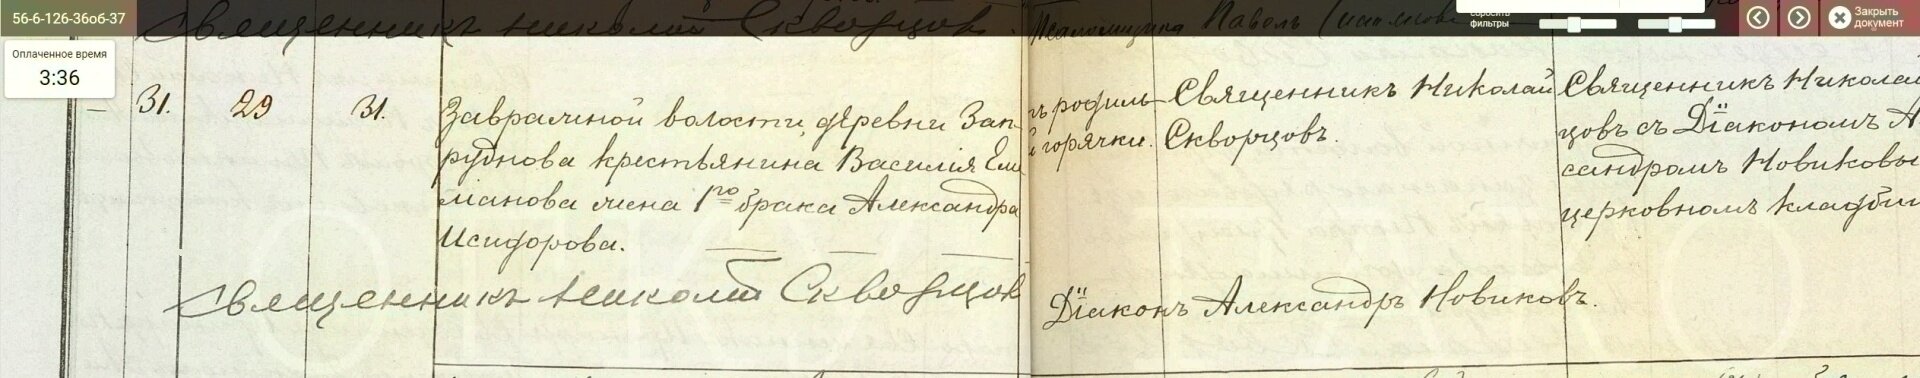 56-6-126-36об-37
Оплаченное время
3:36
Сбросить
фильтры
Закрыть
документ
Священникъ Николай Скворцов.
Псаломщикъ Павелъ
31. 29 31.
Завражной волости, деревни Зап-
руднова крестьянина Василія Ем
ліанова жена 1го брака Александра
Исидорова.
ъ родиль-
горячки.
Священникъ Николай
Скворцовъ.
Священникъ Николай
цовъ съ Діакономъ А
сандромъ Новиковы
церковномъ кладби
Священникъ Николай Скворцов
Діаконъ Александръ Новиковъ.